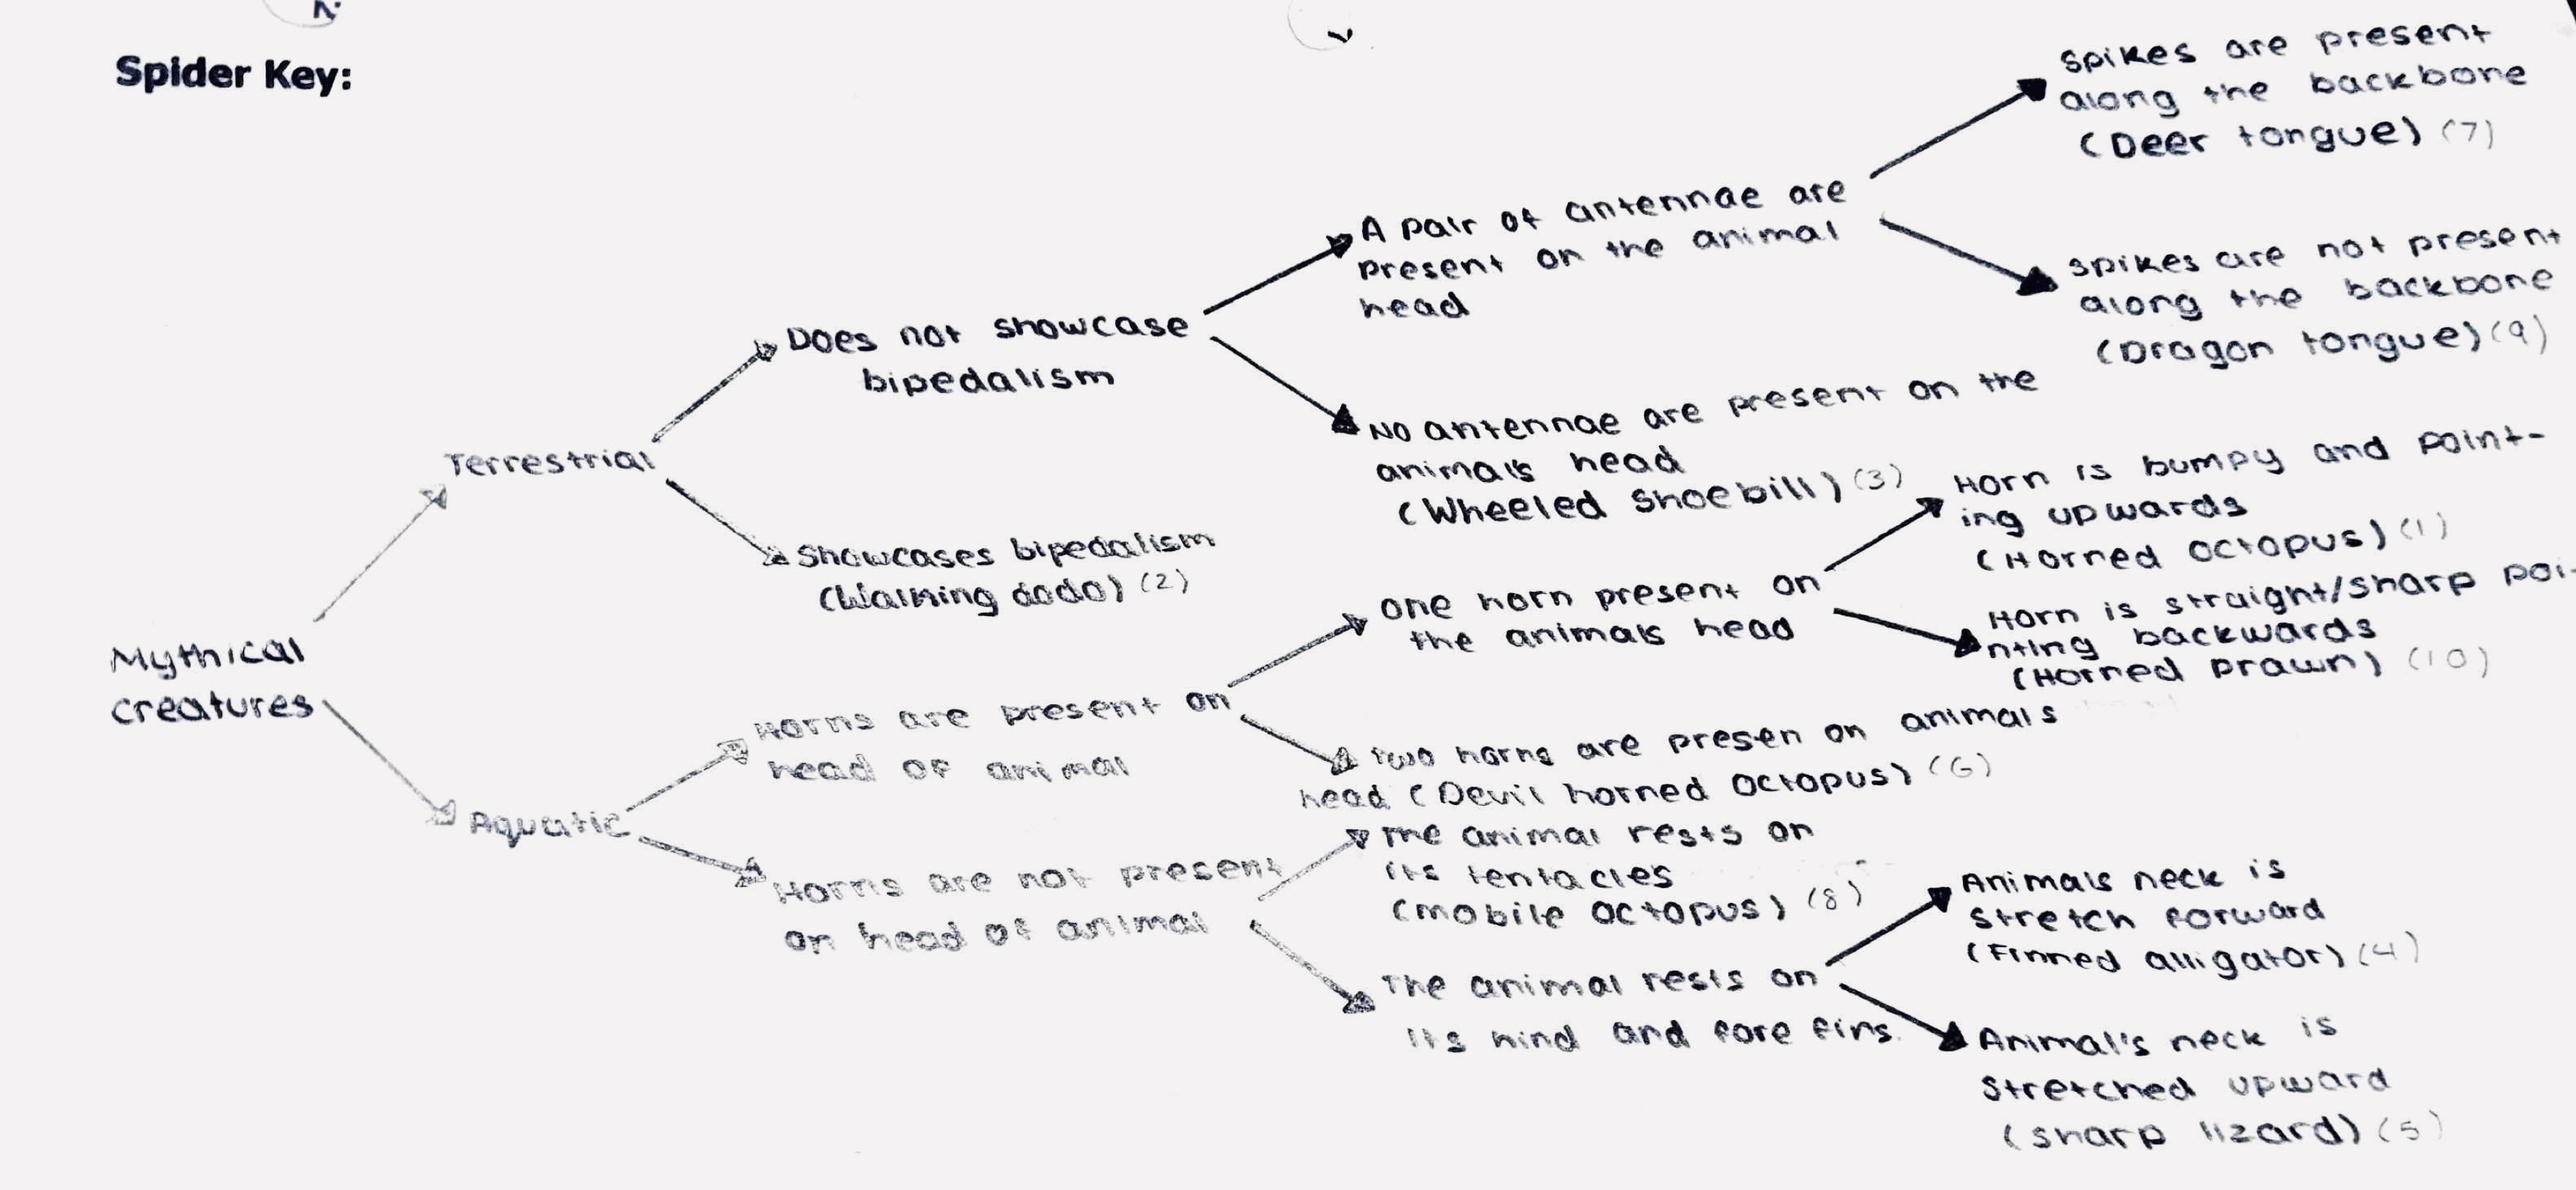 Spider Key:
Mythical
creatures
Terrestrial
Does not showcase
bipedalism
A pair of antennae are
present on the animal
head
Spikes are present
along the backbone
(Deer tongue) (7)
spikes are not present
along the backbone
(Dragon tongue) (9)
No antennae are present on the
animals head
(Wheeled shoebill) (3)
Showcases bipedalism
(Walking dodo) (2)
Aquatic
Horns are present on
head of animal
one horn present on
the animals head
Horn is bumpy and point-
ing upwards
(Horned octopus) (1)
Horn is straight/sharp poi-
nting backwards
(Horned prawn) (10)
Two horns are presen on animals
head (Devil horned octopus) (6)
Horns are not present
on head of animal
The animal rests on
its tentacles
(mobile octopus) (8)
The animal rests on
its hind and fore fins.
Animals neck is
stretch forward
(Finned alligator) (4)
Animal's neck is
stretched upward
(sharp lizard) (5)